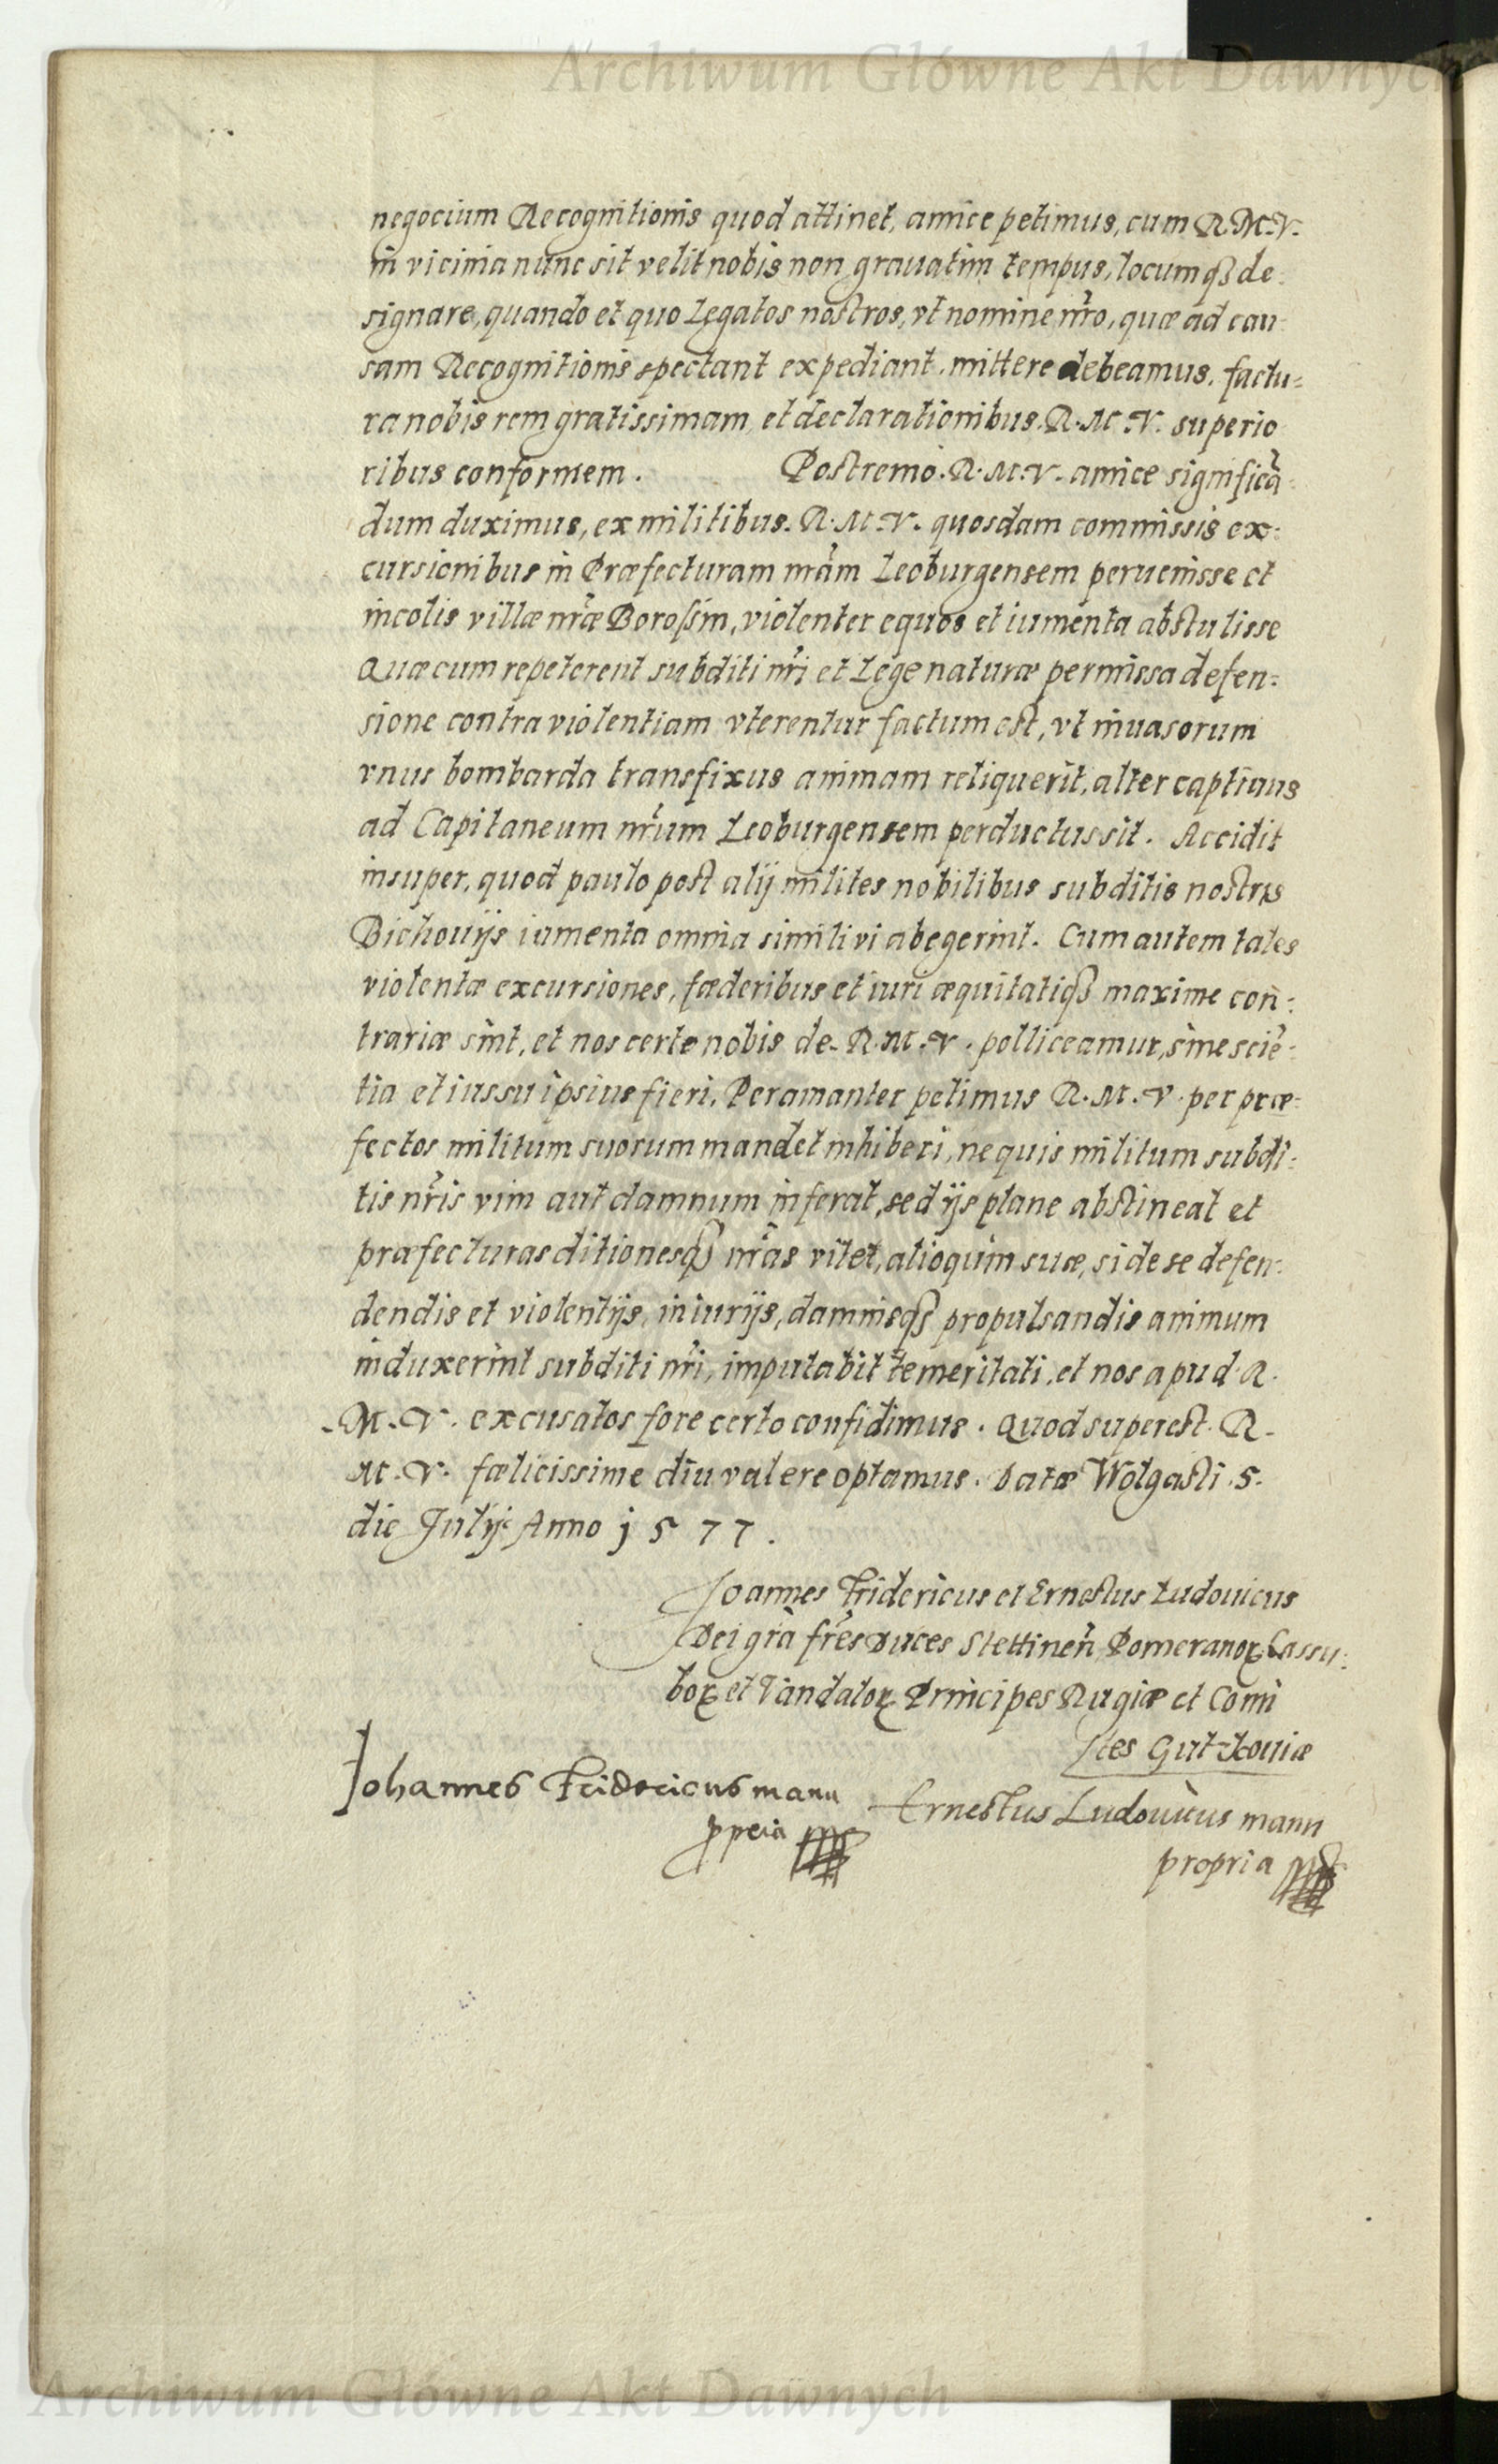 Archiwum Główne Akt Dawnych
negocium Recognitionis quod attinet, amice petimus, cum R. M. V.
in vicinia nunc sit velit nobis non grauatim tempus, locumq₃ de:
signare, quando et quo Legatos nostros, vt nomine nr̃o, quæ ad cau:
sam Recognitionis spectant expediant, mittere debeamus, factu:
ra nobis rem gratissimam, et declarationibus R. M. V. superio
ribus conformem. Postremo. R. M. V. amice significã:
dum duximus, ex militibus. R. M. V. quosdam commissis ex:
cursionibus in Præfecturam nr̃am Leoburgensem peruenisse et
incolis villæ nr̃æ Borossin, violenter equos et iumenta abstulisse
Quæ cum repeterent subditi nr̃i et Lege naturæ permissa defen:
sione contra violentiam vterentur factum est, vt inuasorum
vnus bombarda transfixus animam reliquerit, alter captiuus
ad Capitaneum nr̃um Leoburgensem perductus sit. Accidit
insuper, quod paulo post alij milites nobilibus subditis nostris
Bichouijs iumenta omnia simili vi abegerint. Cum autem tales
violentæ excursiones, fœderibus et iuri æquitatiq₃ maxime con:
trariæ sint, et nos certe nobis de R. M. V. polliceamur, sine sciẽ:
tia et iussu ipsius fieri. Peramanter petimus R. M. V. per præ:
fectos militum suorum mandet inhiberi, ne quis militum subdi:
tis nr̃is vim aut damnum inferat, sed ijs plane abstineat et
præfecturas ditionesq₃ nr̃as vitet, alioquin suæ, si de se defen:
dendis et violentijs, iniurijs, damnisq₃ propulsandis animum
induxerint subditi nr̃i, imputabit temeritati, et nos apud R.
M. V. excusatos fore certo confidimus. Quod superest. R.
M. V. fœlicissime diu valere optamus. Datæ Wolgasti. 5.
die Julij Anno 1577.
Joannes Fridericus et Ernestus Ludouicus
Dei grã frẽs Duces Stettineñ Pomeranoꝝ Cassu:
boꝝ et Vandaloꝝ Principes Rugiæ et Comi
tes Gutzkouiæ
Johannes Fridericus manu
ꝓpria
Ernestus Ludouicus manu
propria
Archiwum Główne Akt Dawnych